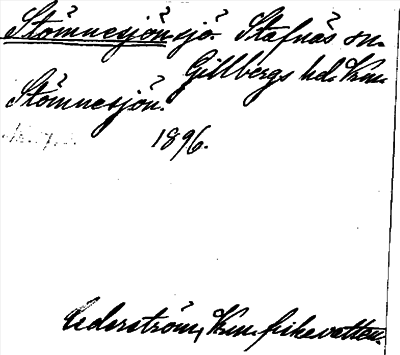 Stömnesjön sjö. Stafnäs sn.
Gillbergs hd. Vrm.
Stömnesjön.
1896.
Cederström, Vrm. fiskevatten.